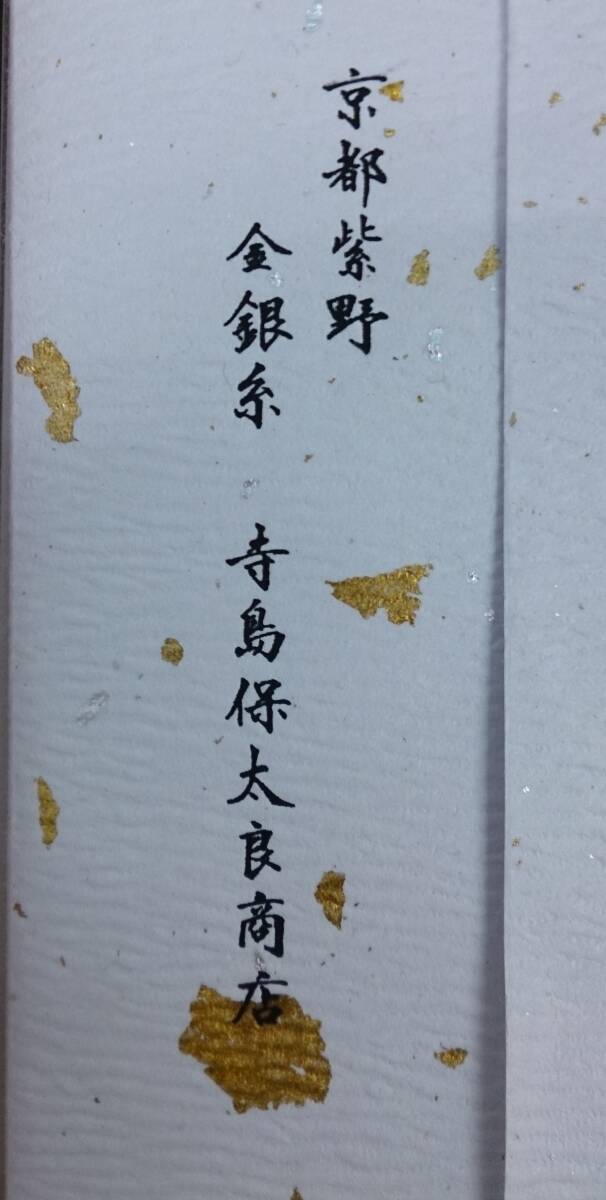 京都紫野
金銀糸 寺島保太良商店